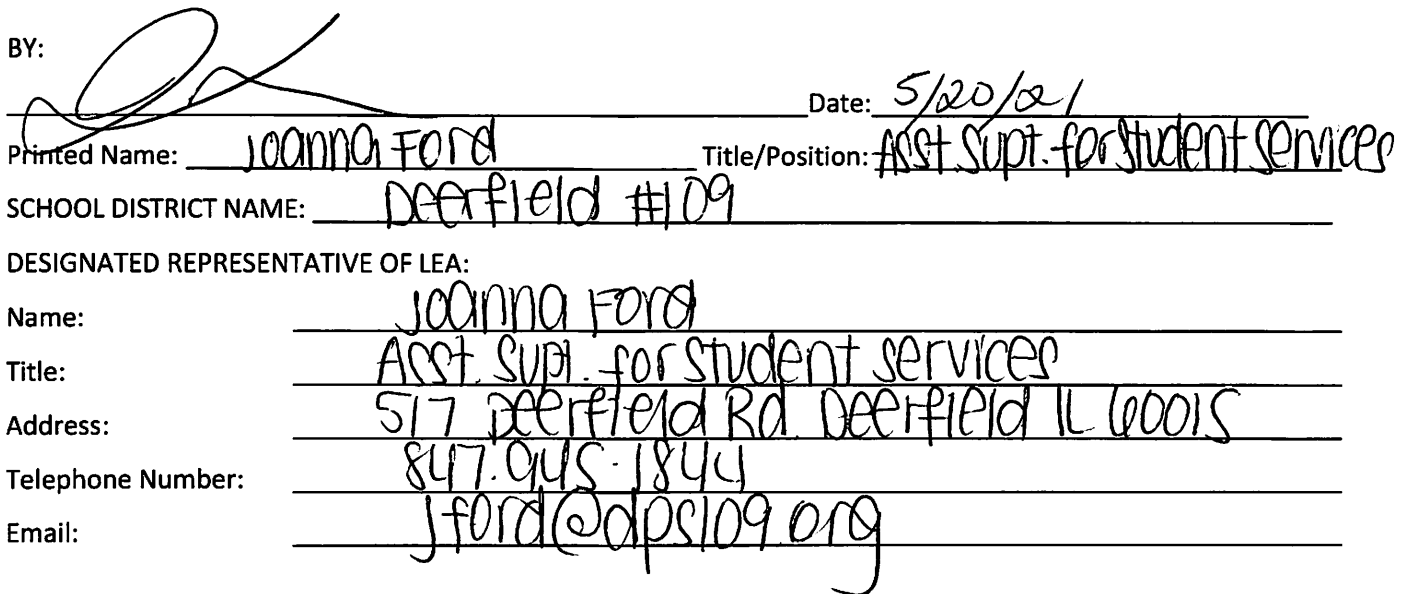 BY:
Date: 5/20/21
Printed Name: Joanna Ford Title/Position: Asst. Supt. for Student Services
SCHOOL DISTRICT NAME: Deerfield #109
DESIGNATED REPRESENTATIVE OF LEA:
Name: Joanna Ford
Title: Asst. Supt. for Student Services
Address: 517 Deerfield Rd. Deerfield IL 60015
Telephone Number: 847.945.1844
Email: jford@dps109.org